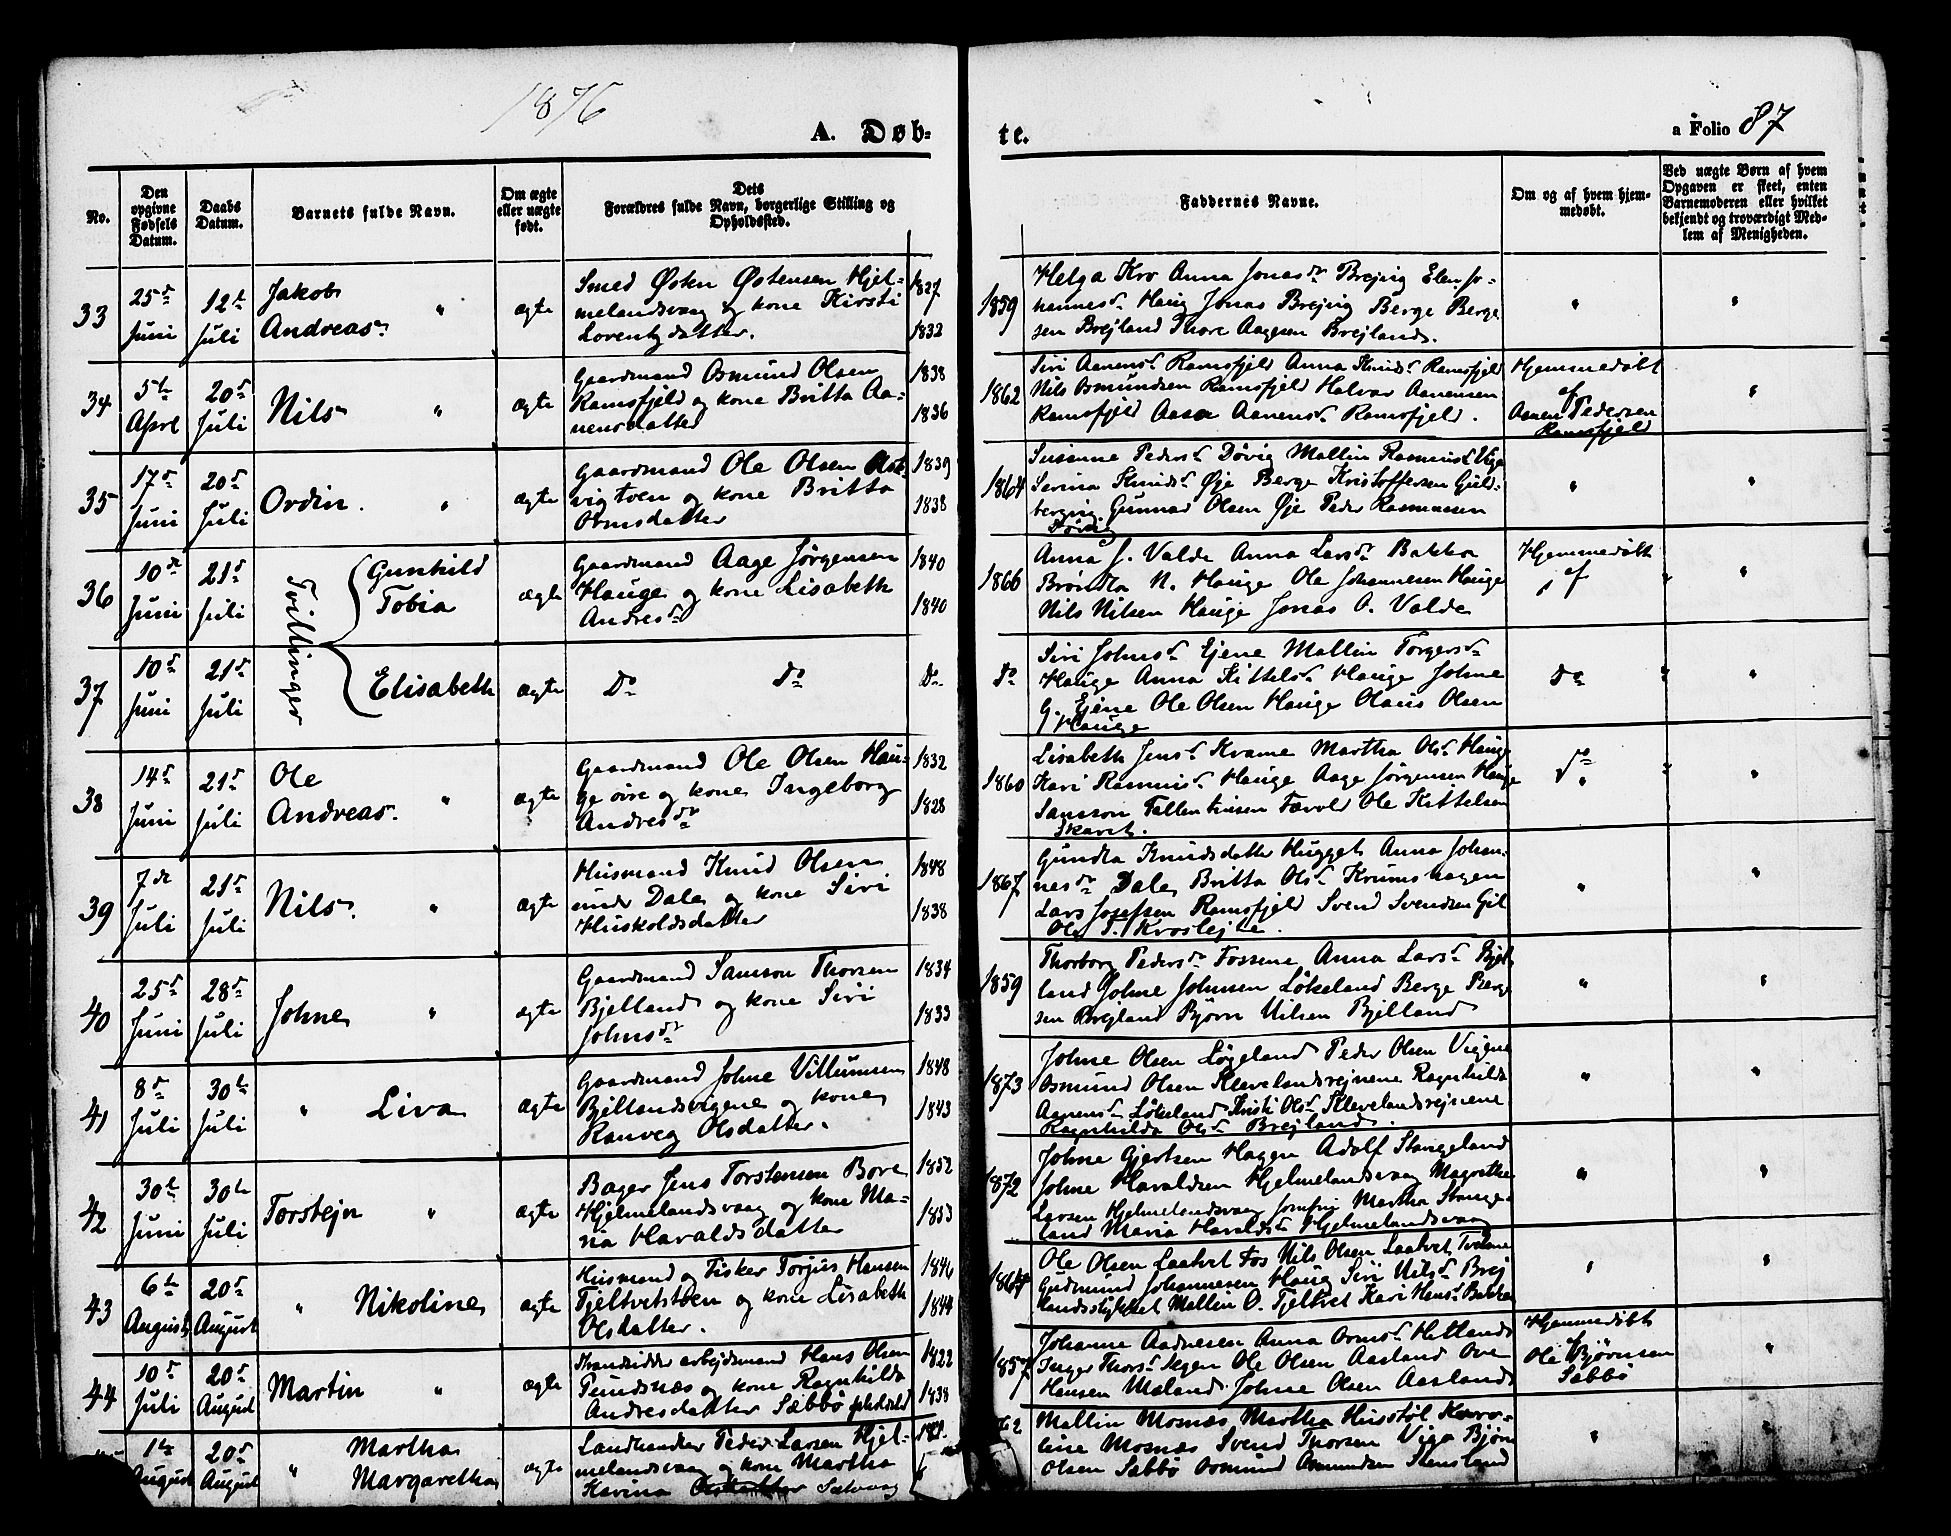 1876
A. Døb-
te.
a Folio 87
No.
Den opgivne Fødsels Datum.
Daabs Datum.
Barnets fulde Navn.
Om ægte eller uægte født.
Dets Forældres fulde Navn, borgerlige Stilling og Opholdssted.
Faddernes Navne.
Om og af hvem hjemmedøbt.
Ved uægte Børn af hvem Opgaven er skeet, enten Barnemoderen eller hvilket bekjendt og troværdigt Medlem af Menigheden.
33
25d Juni
12t Juli
Jakob
Andreas
ægte
Smed Østen Østensen Hjel-
melandsvaag og kone Kirsti
Lorentzdatter.
1827
1832
1859
Helga Kro Anna Jonasdr Brejng Elen Jo-
hannesd. Haug Jonas Brejng Berge Berge
sen Brejland Thore Aagesen Brejland.
34
5te April
20d Juli
Nils
ægte
Gaardmand Osmund Olsen
Ramsfjeld og kone Britta Aa-
nensdatter
1838
1836
1862
Siri Aanensd. Ramsfjeld Anna Knudsd. Ramsfjeld
Nils Osmundsen Ramsfjeld Halvar Aanensen
Ramsfjeld Aasa Aanensd. Ramsfjeld.
Hjemmedøbt
af
Aanen Pedersen
Ramsfjeld
35
17d Juni
20d Juli
Ordin.
ægte
Gaardmand Ole Olsen
vigtveen og kone Britta
Ormsdatter
1839
1838
1864
Susanne Pedersd. Døvig Mallin Rasmusd. Viga
Serina Knudsd. Øje Berge Kristoffersen Guld-
berging Gunnar Olsen Øje Peder Rasmussen
Døvig
36
10de Juni
21d Juli
Tvillinger
Gunhild
Tobia
ægte
Gaardmand Aage Jørgensen
Hauge og kone Lisabeth
Andresd.
1840
1840
1866
Anna J. Valde Anna Larsdr Bakka
Brøndla N. Hauge Ole Johannesen Hauge
Nils Nilsen Hauge Jonas O. Valde
Hjemmedøbt
af
37
10d Juni
21d Juli
Elisabeth
ægte
Do Do
Do
Do
Siri Johnsd. Ejene Mallin Torgersd.
Hauge Anna Kittelsd. Hauge Johne
G. Ejene Ole Olsen Hauge Olaus Olsen
Hauge
Do
38
14d Juni
21d Juli
Ole
Andreas.
ægte
Gaardmand Ole Olsen Hau-
ge øvre og kone Ingeborg
Andresdr
1832
1828
1860
Lisabeth Jensd. Kvame Martha Olsd. Hauge
Kari Rasmusd. Hauge Aage Jørgensen Hauge
Samson Fallentinsen Fævold Ole Kittelsen
Skaret.
Do
39
7de Juli
21d Juli
Nils.
ægte
Husmand Knud Olsen
under Dale og kone Siri
Huskoldsdatter
1848
1838
1867
Gundla Knudsdatter Hugget Anna Johan-
nesdr Dale Britta Olsd. Krumshagen
Lars Josefsen Ramsfjeld Svend Svendsen Gil
Ole T. Kroslejte.
40
25d Juni
28d Juli
Johne
ægte
Gaardmand Samson Thorsen
Bjelland og kone Siri
Johnsdr
1834
1833
1859
Thorborg Pedersdr Fossene Anna Larsd. Bjel
land Johne Johnsen Løkeland Berge Berge
sen Brejland Bjørn Nilsen Bjelland
41
8d Juli
30te Juli
Liva
ægte
Gaardmand Johne Villumsen
Bjellandsvigene og kone
Ranveg Olsdatter.
1848
1843
1873
Johne Olsen Løgeland Peder Olsen Vigene
Osmund Olsen Klevelandsvejnene Ragnhilda
Aanensd. Løkeland Kristi Olsd. Klevelandsvejnene
Ragnhilda Olsd. Brejland.
42
30te Juni
30te Juli
Torstejn
ægte
Bager Jens Torstensen Bore
Hjelmelandsvaag og kone Ma-
na Haraldsdatter
1852
1853
1872
Johne Gjertsen Hagen Adolf Stangeland
Johne Haraldsen Hjelmelandsvaag Magrethe
Larsen Hjelmelandsvaag Jomfru Martha Stange-
land Maria Haraldsd. Hjelmelandsvaag
43
6te August
20d August
Nikoline
ægte
Husmand og Fisker Torjus Hansen
Tjeltvetstøen og kone Lisabeth
Olsdatter.
1846
1844
1864
Ole Olsen Laatvet Fos Nils Olsen Laatvet
Gudmund Johannesen Haug Siri Nilsd. Brej
landsstykket Mallin O. Tjeltvet Kari Hansd. Bakka
44
10d Juli
20d August
Martin
ægte
Strandsidder arbejdsmand Hans Olsen
Pundsnæs og kone Ragnhilda
Andresdatter Sæbbø
1822
1838
1857
Johanne Aadnesen Anna Ormsd. Hetland
Inger Thorsd. Segen Ole Olsen Aasland Ove
Hansen Meland Johne Olsen Aasland
Hjemmedøbt
af
Ole Bjørnsen
Sæbbø
1te August
20d August
Martha
Margaretha
ægte
Landhandler Peder Larsen Hjel-
melandsvaag og kone Martha
Karina
62
Mallin Mosnæs Martha Husstøl Karo-
line Mosnæs Svend Thorsen Viga Bjørn
Olsen Sæbbø Osmund Osmundsen Stensland